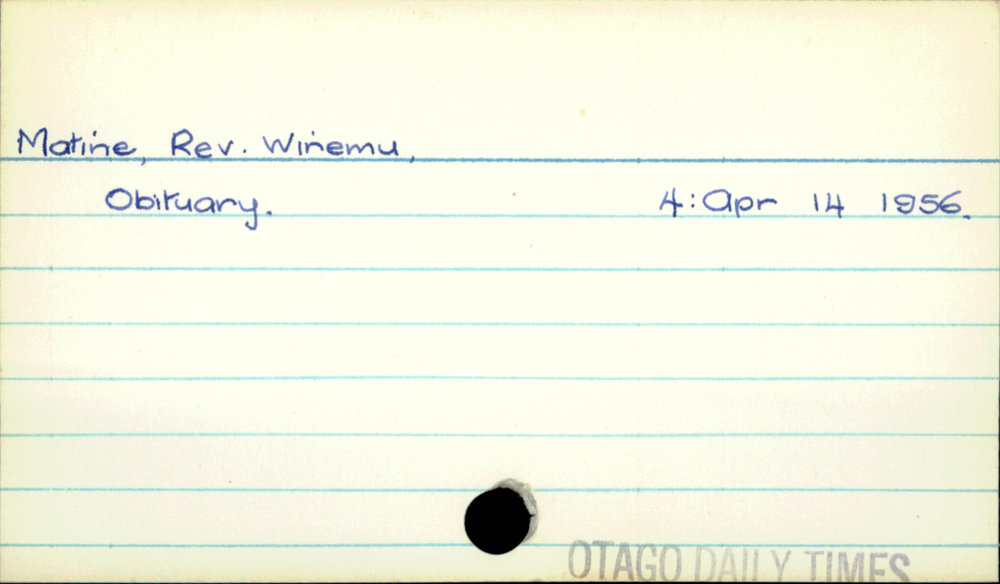 Matine, Rev. Winemu,
Obituary. 4: Apr 14 1956.
OTAGO DAILY TIMES